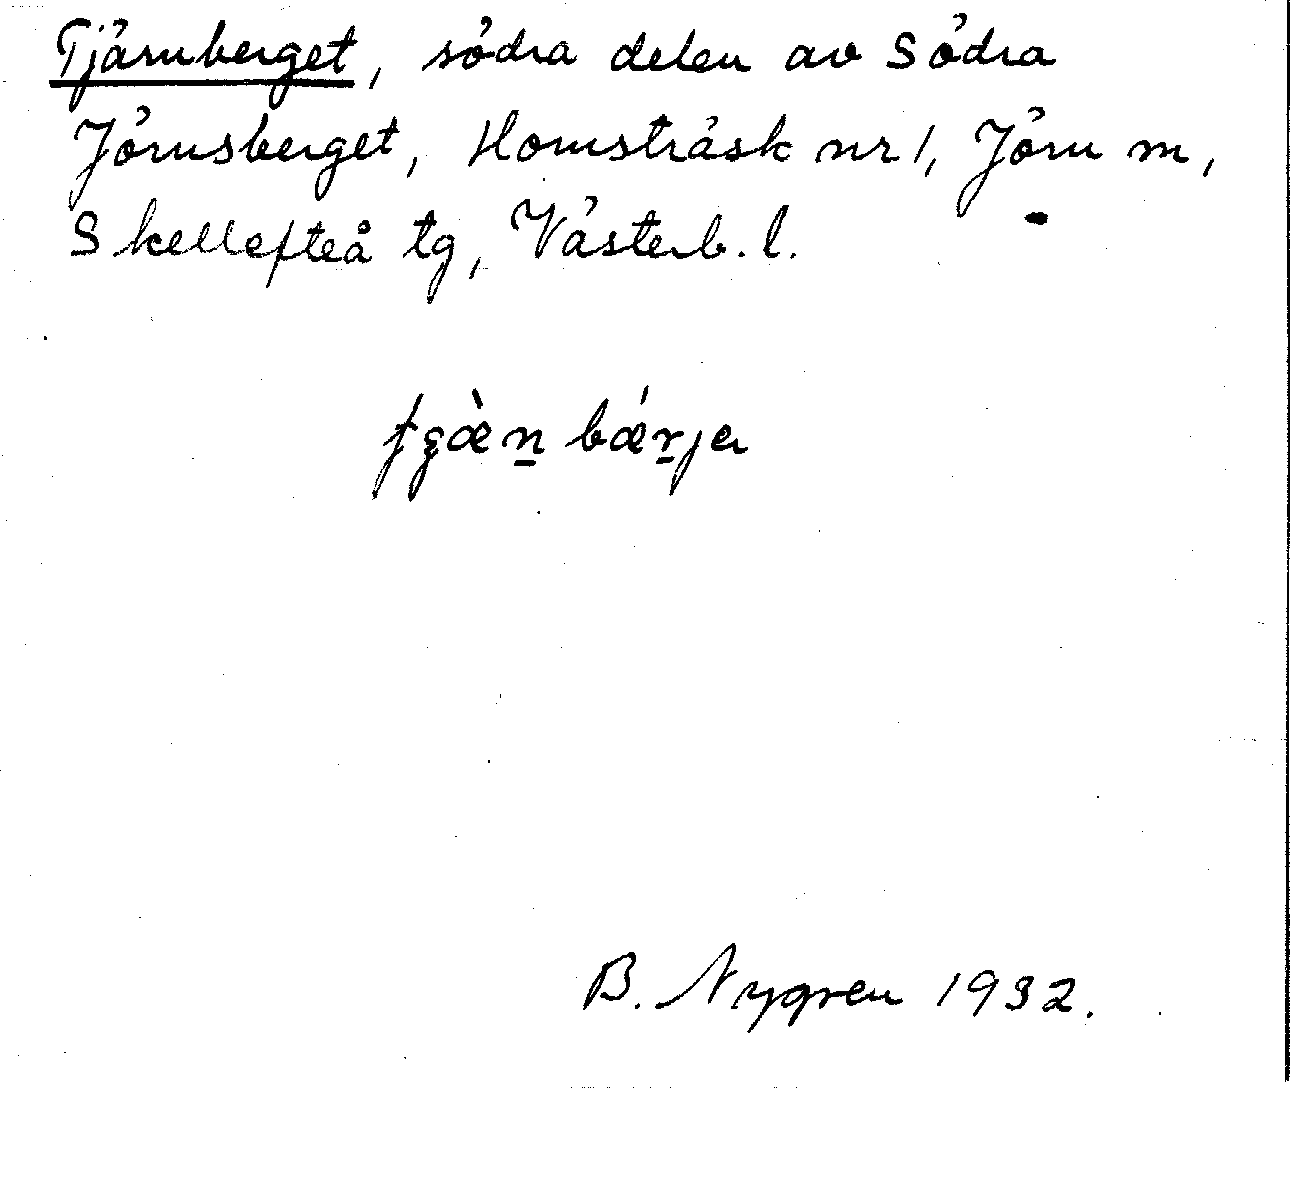 Tjärnberget, södra delen av Södra
Jörnsberget, Hornsträsk nr 1, Jörn m,
Skellefteå tg, Västerb. l.
bǽrjer
B. Nygren 1932.